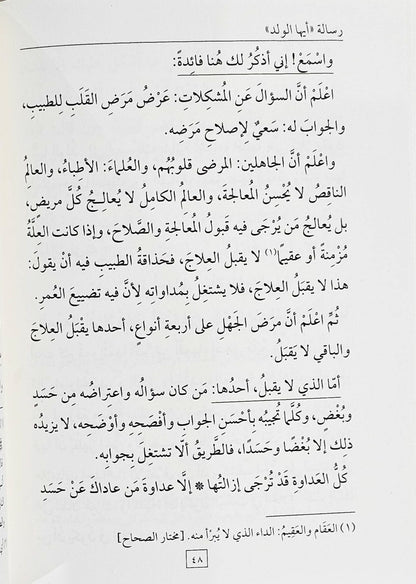 رسالة «أيها الولد»
واسْمَعْ! إني أذكُرُ لك هُنا فائِدةً:
اعْلَمْ أنَّ السؤالَ عَنِ المُشكِلاتِ: عَرْضُ مَرَضِ القَلْبِ للطبيبِ،
والجوابَ له: سَعيٌ لإصلاحِ مَرَضِه.
واعْلَمْ أنَّ الجاهلين: المرضى قلوبُهُم، والعُلماءَ: الأطِباءُ، والعالِمُ
الناقِصُ لا يُحْسِنُ المُعالجةَ، والعالِمُ الكامِلُ لا يُعالِجُ كُلَّ مريضٍ،
بل يُعالجُ مَن يُرْجَى فيه قَبولُ المُعالجةِ والصَّلاحَ، وإذا كانت العِلَّةُ
مُزْمِنةً أو عقيمًا(١) لا يقبلُ العِلاجَ، فحَذاقةُ الطبيبِ فيه أنْ يقولَ:
هذا لا يقبَلُ العِلاجَ، فلا يشتغِلُ بمُداواتِه لأنَّ فيه تضييعَ العُمرِ.
ثُمَّ اعْلَمْ أنَّ مَرَضَ الجَهْلِ على أربعةِ أنواعٍ، أحدها يقْبَلُ العِلاجَ
والباقي لا يَقبَلُ.
أمّا الذي لا يقبلُ، أحدُها: مَن كان سؤالُه واعتراضُه مِن حَسَدٍ
وبُغْضٍ، وكُلَّما تُجيبُه بأحْسَنِ الجواب وأفْصَحِه وأوْضَحِه، لا يزيدُه
ذلِك إلا بُغْضًا وحَسَدًا، فالطَّريقُ ألّا تشتغلَ بجوابِه.
كُلُّ العداوةِ قدْ تُرْجَى إزالتُها * إلّا عداوةَ مَن عاداكَ عَنْ حَسَدِ
(١) العَقَام والعَقِيمُ: الداء الذي لا يُبرَأ منه. [مختار الصحاح]
٤٨